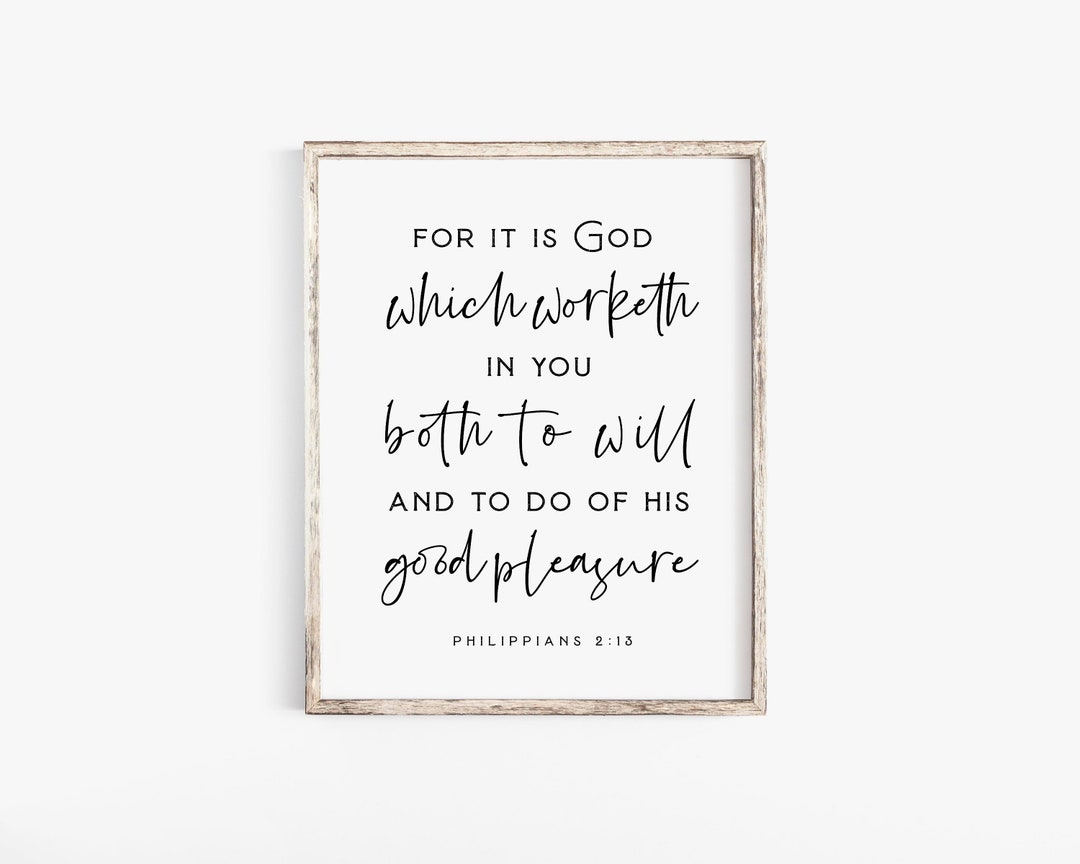 FOR IT IS GOD
which worketh
IN YOU
both to will
AND TO DO OF HIS
good pleasure
PHILIPPIANS 2:13